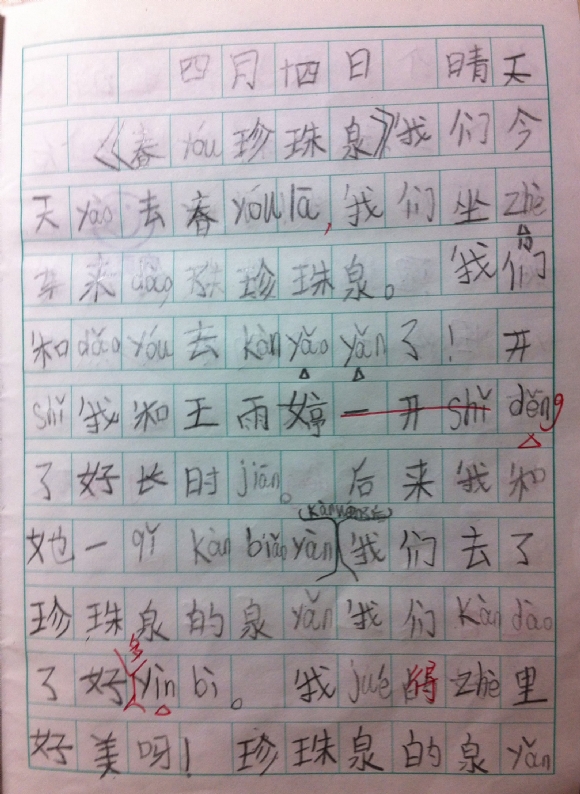 四月十四日 晴天
《春yóu珍珠泉》我们今
天yào去春yóu lā,我们坐zhè
车来dào了珍珠泉。我们
和dǎo yóu去kàn yǎo yǎn了!开
shǐ我和王雨婷一开shǐ děng
了好长时jiān。后来我和
她一qǐ kàn biǎo yǎn(kàn wán后)我们去了
珍珠泉的泉yǎn我们kàn dào
了好多yìn bì。我jué得zhè里
好美呀!珍珠泉的泉yǎn